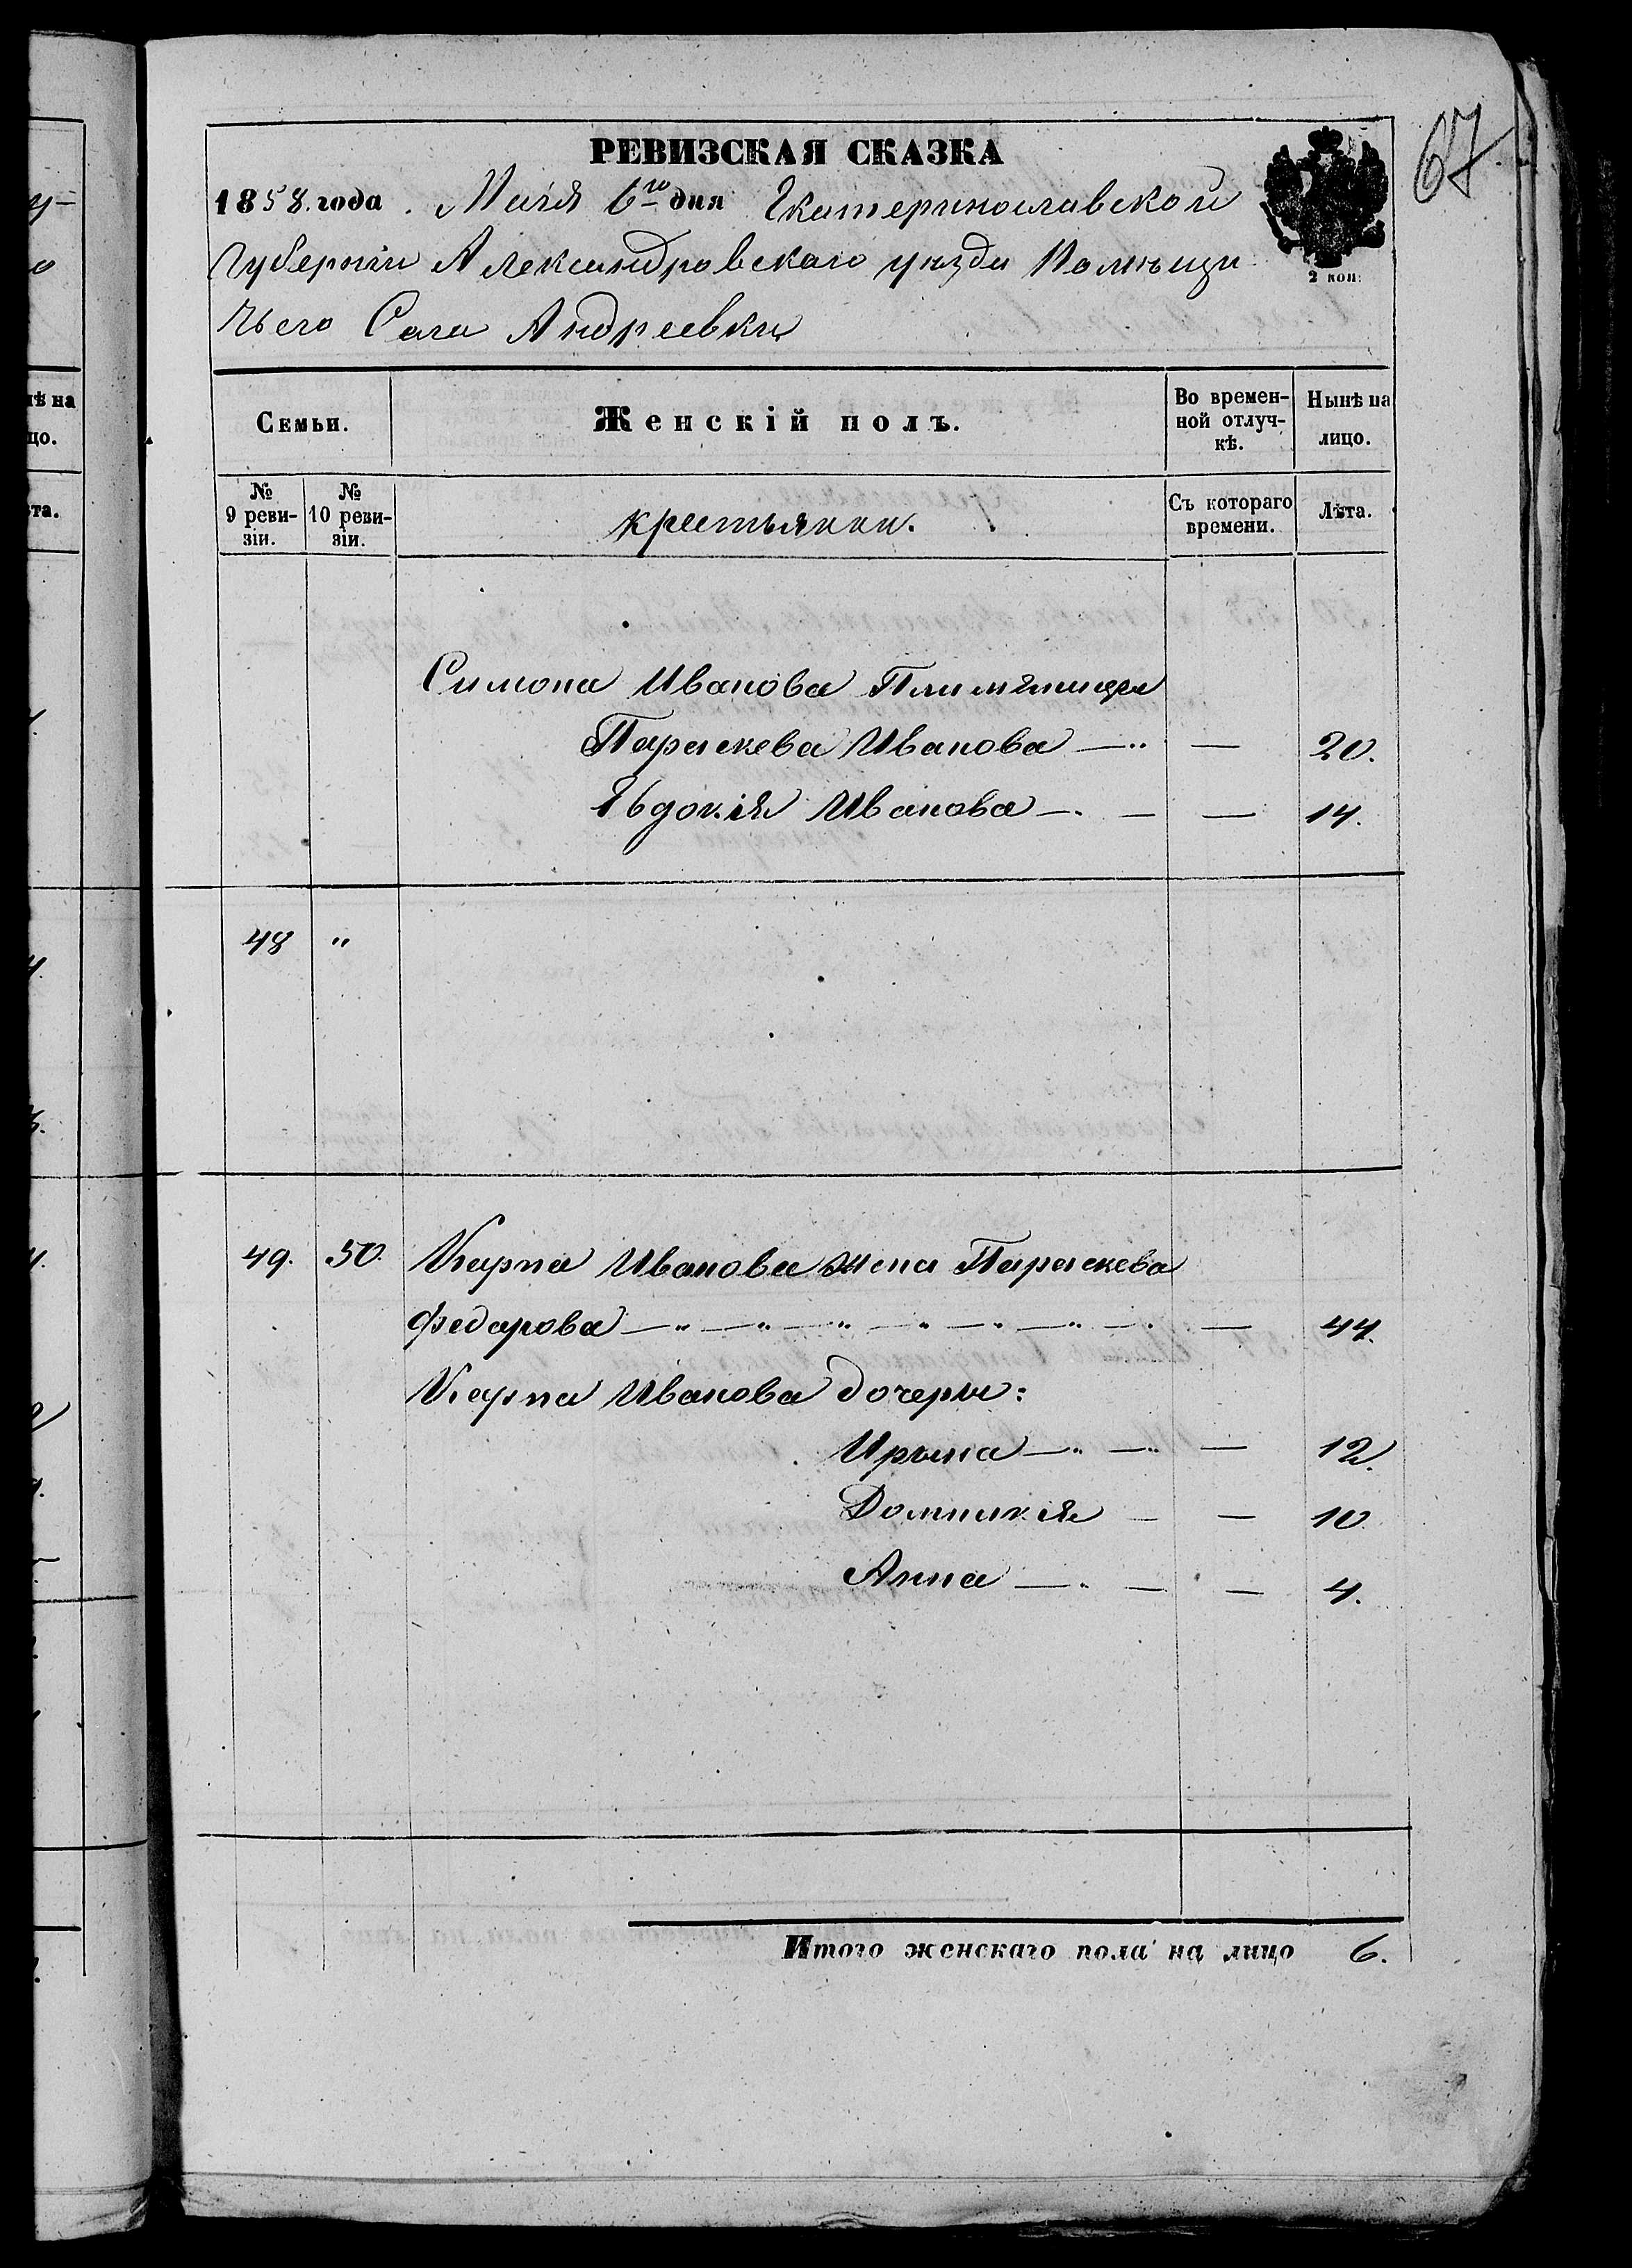 67
РЕВИЗСКАЯ СКАЗКА
1858. года. Мая 6го дня Екатеринославской
Губерніи Александровскаго уѣзда Помѣщи
2 коп:
чьего Села Андреевки
Семьи.
Женскій полъ.
Во времен-
ной отлуч-
кѣ.
Нынѣ на
лицо.
№
9 реви-
зіи.
№
10 реви-
зіи.
крестьянки.
Съ котораго
времени.
Лѣта.
Симона Иванова Племянницы
Параскева Иванова — — 20.
Евдокія Иванова — — — 14.
48 "
49. 50. Карпа Иванова жена Параскева
Федарова — — — — — — — — 44.
Карпа Иванова дочеры:
Ирына — — — 12.
Домникія — — 10
Анна — — — 4.
Итого женскаго пола на лицо 6.
ѣ на
цо.
та.